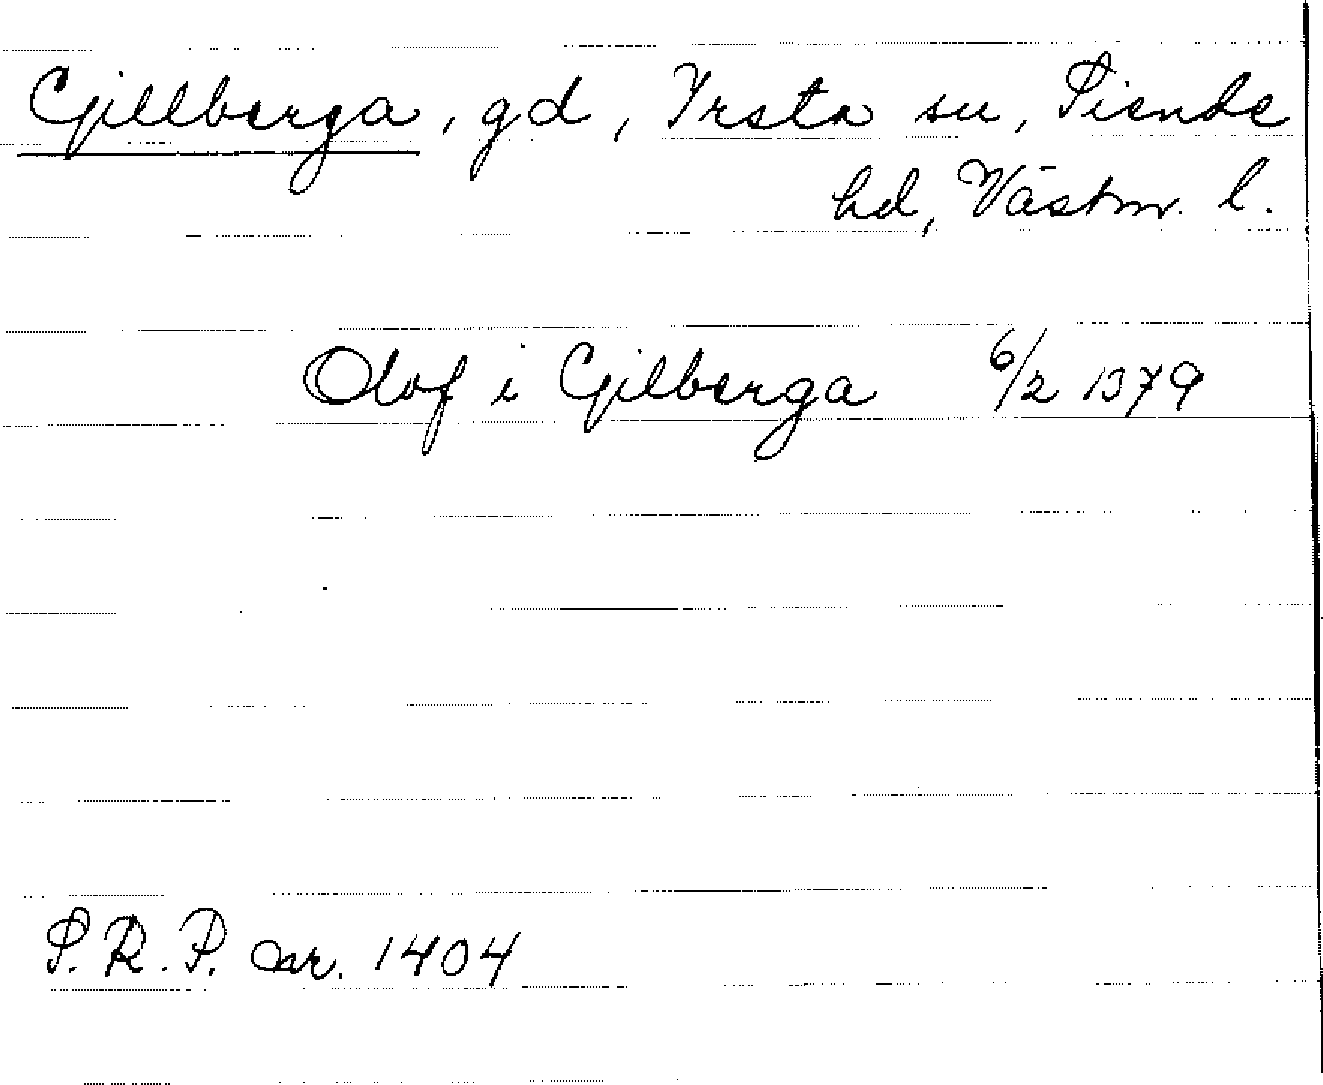 Gillberga, gd, Irsta sn, Siende
hd, Västm. l.
Olof i Gilberga 6/2 1379
S.R.P. nr. 1404